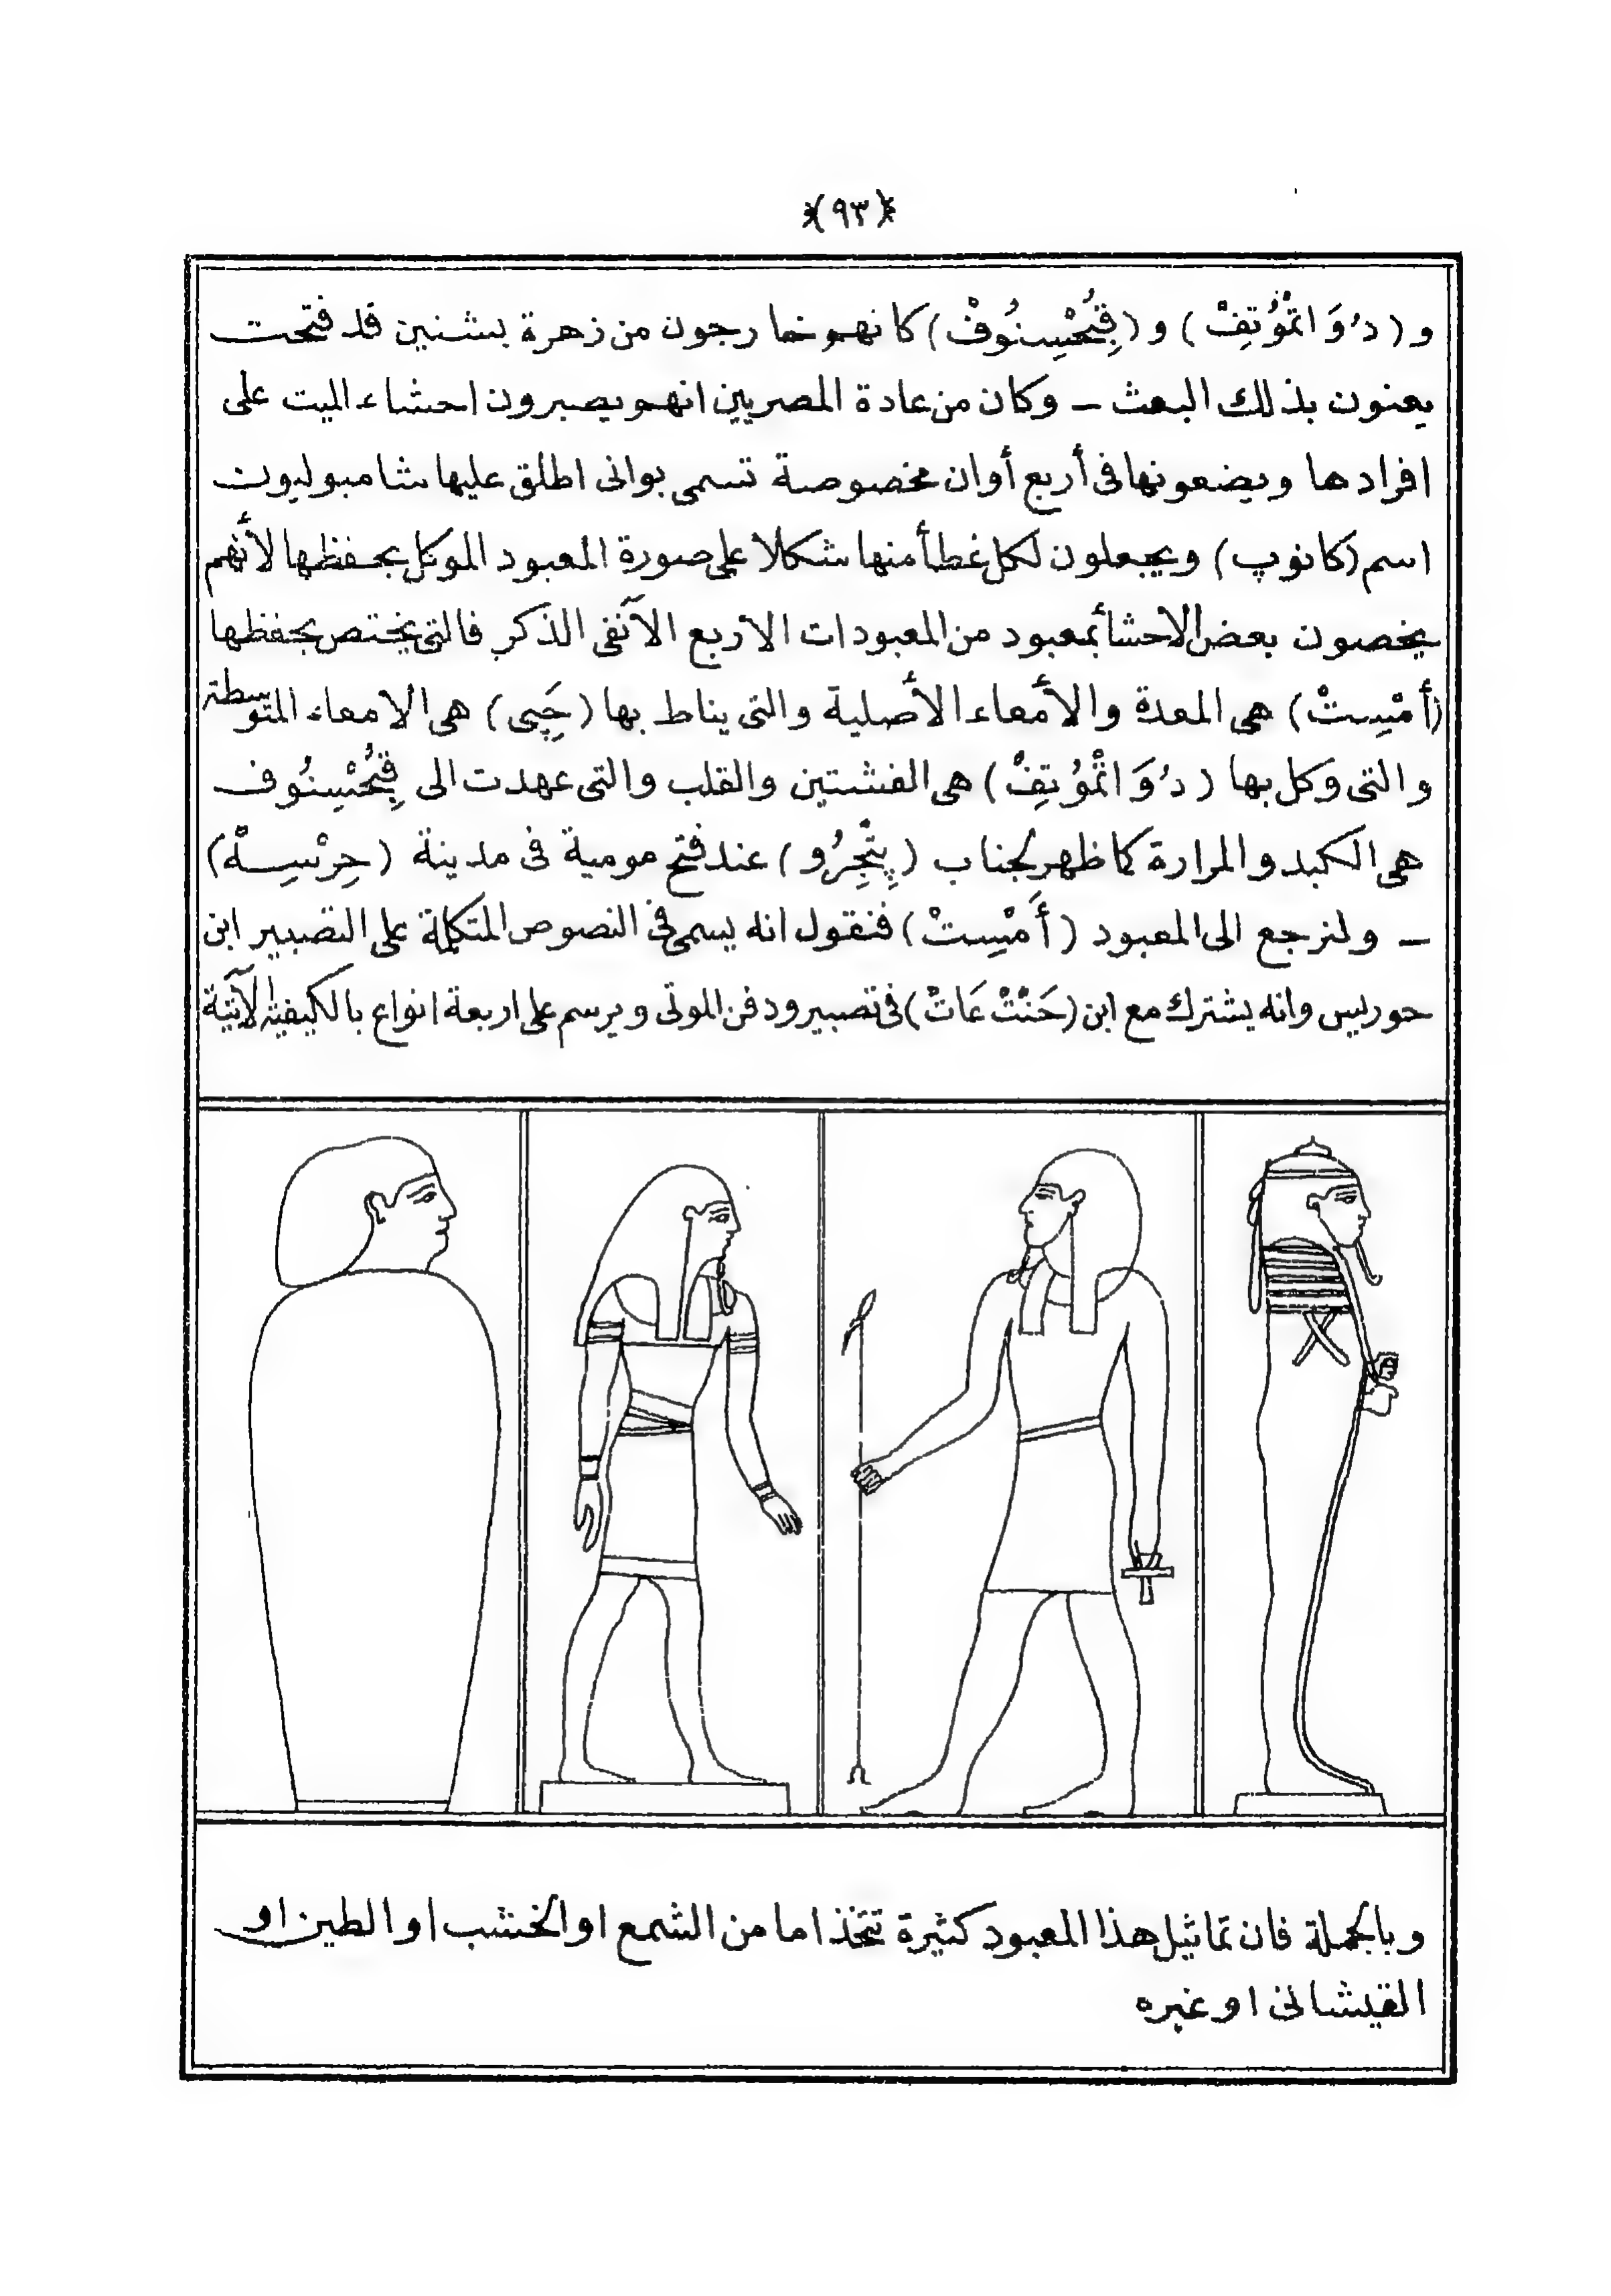 ﴿٩٣﴾
و (دُوَ اتْمُوُتِفْ) و (قِبُحْسِنُوفْ) كانهم خارجون من زهرة بشنين قد فتحت
يعنون بذلك البعث – وكان من عادة المصريين انهم يصبرون احشاء الميت على
افرادها ويضعونها فى أربع أوان مخصوصة تسمى بوانى اطلق عليها شامبوليون
اسم (كانوپ) ويجعلون لكل غطأ منها شكلا على صورة المعبود الموكل بحفظها لأنهم
يخصون بعض الاحشأ بمعبود من المعبودات الاربع الآنفى الذكر فالتى يختص بحفظها
(أَمْسِتْ) هى المعدة والأمعاء الأصلية والتى يناط بها (حَپِى) هى الامعاء المتوسطة
والتى وكل بها (دُوَ اتْمُوُتِفْ) هى الفشتين والقلب والتى عهدت الى قِبُحْسِنُوف
هى الكبد والمرارة كما ظهر لجناب (پِتْجِرُو) عند فتح مومية فى مدينة (جِرْسِهْ)
– ولنرجع الى المعبود (أَمْسِتْ) فنقول انه يسمى فى النصوص المتكلمة على التصبير ابن
حوريس وانه يشترك مع ابن (حَنْتْ عَاتْ) فى تصبير ودفن الموتى ويرسم على اربعة انواع بالكيفية الآتية
وبالجملة فان تماثيل هذا المعبود كثيرة تتخذ اما من الشمع او الخشب او الطين او
القيشانى او غيره